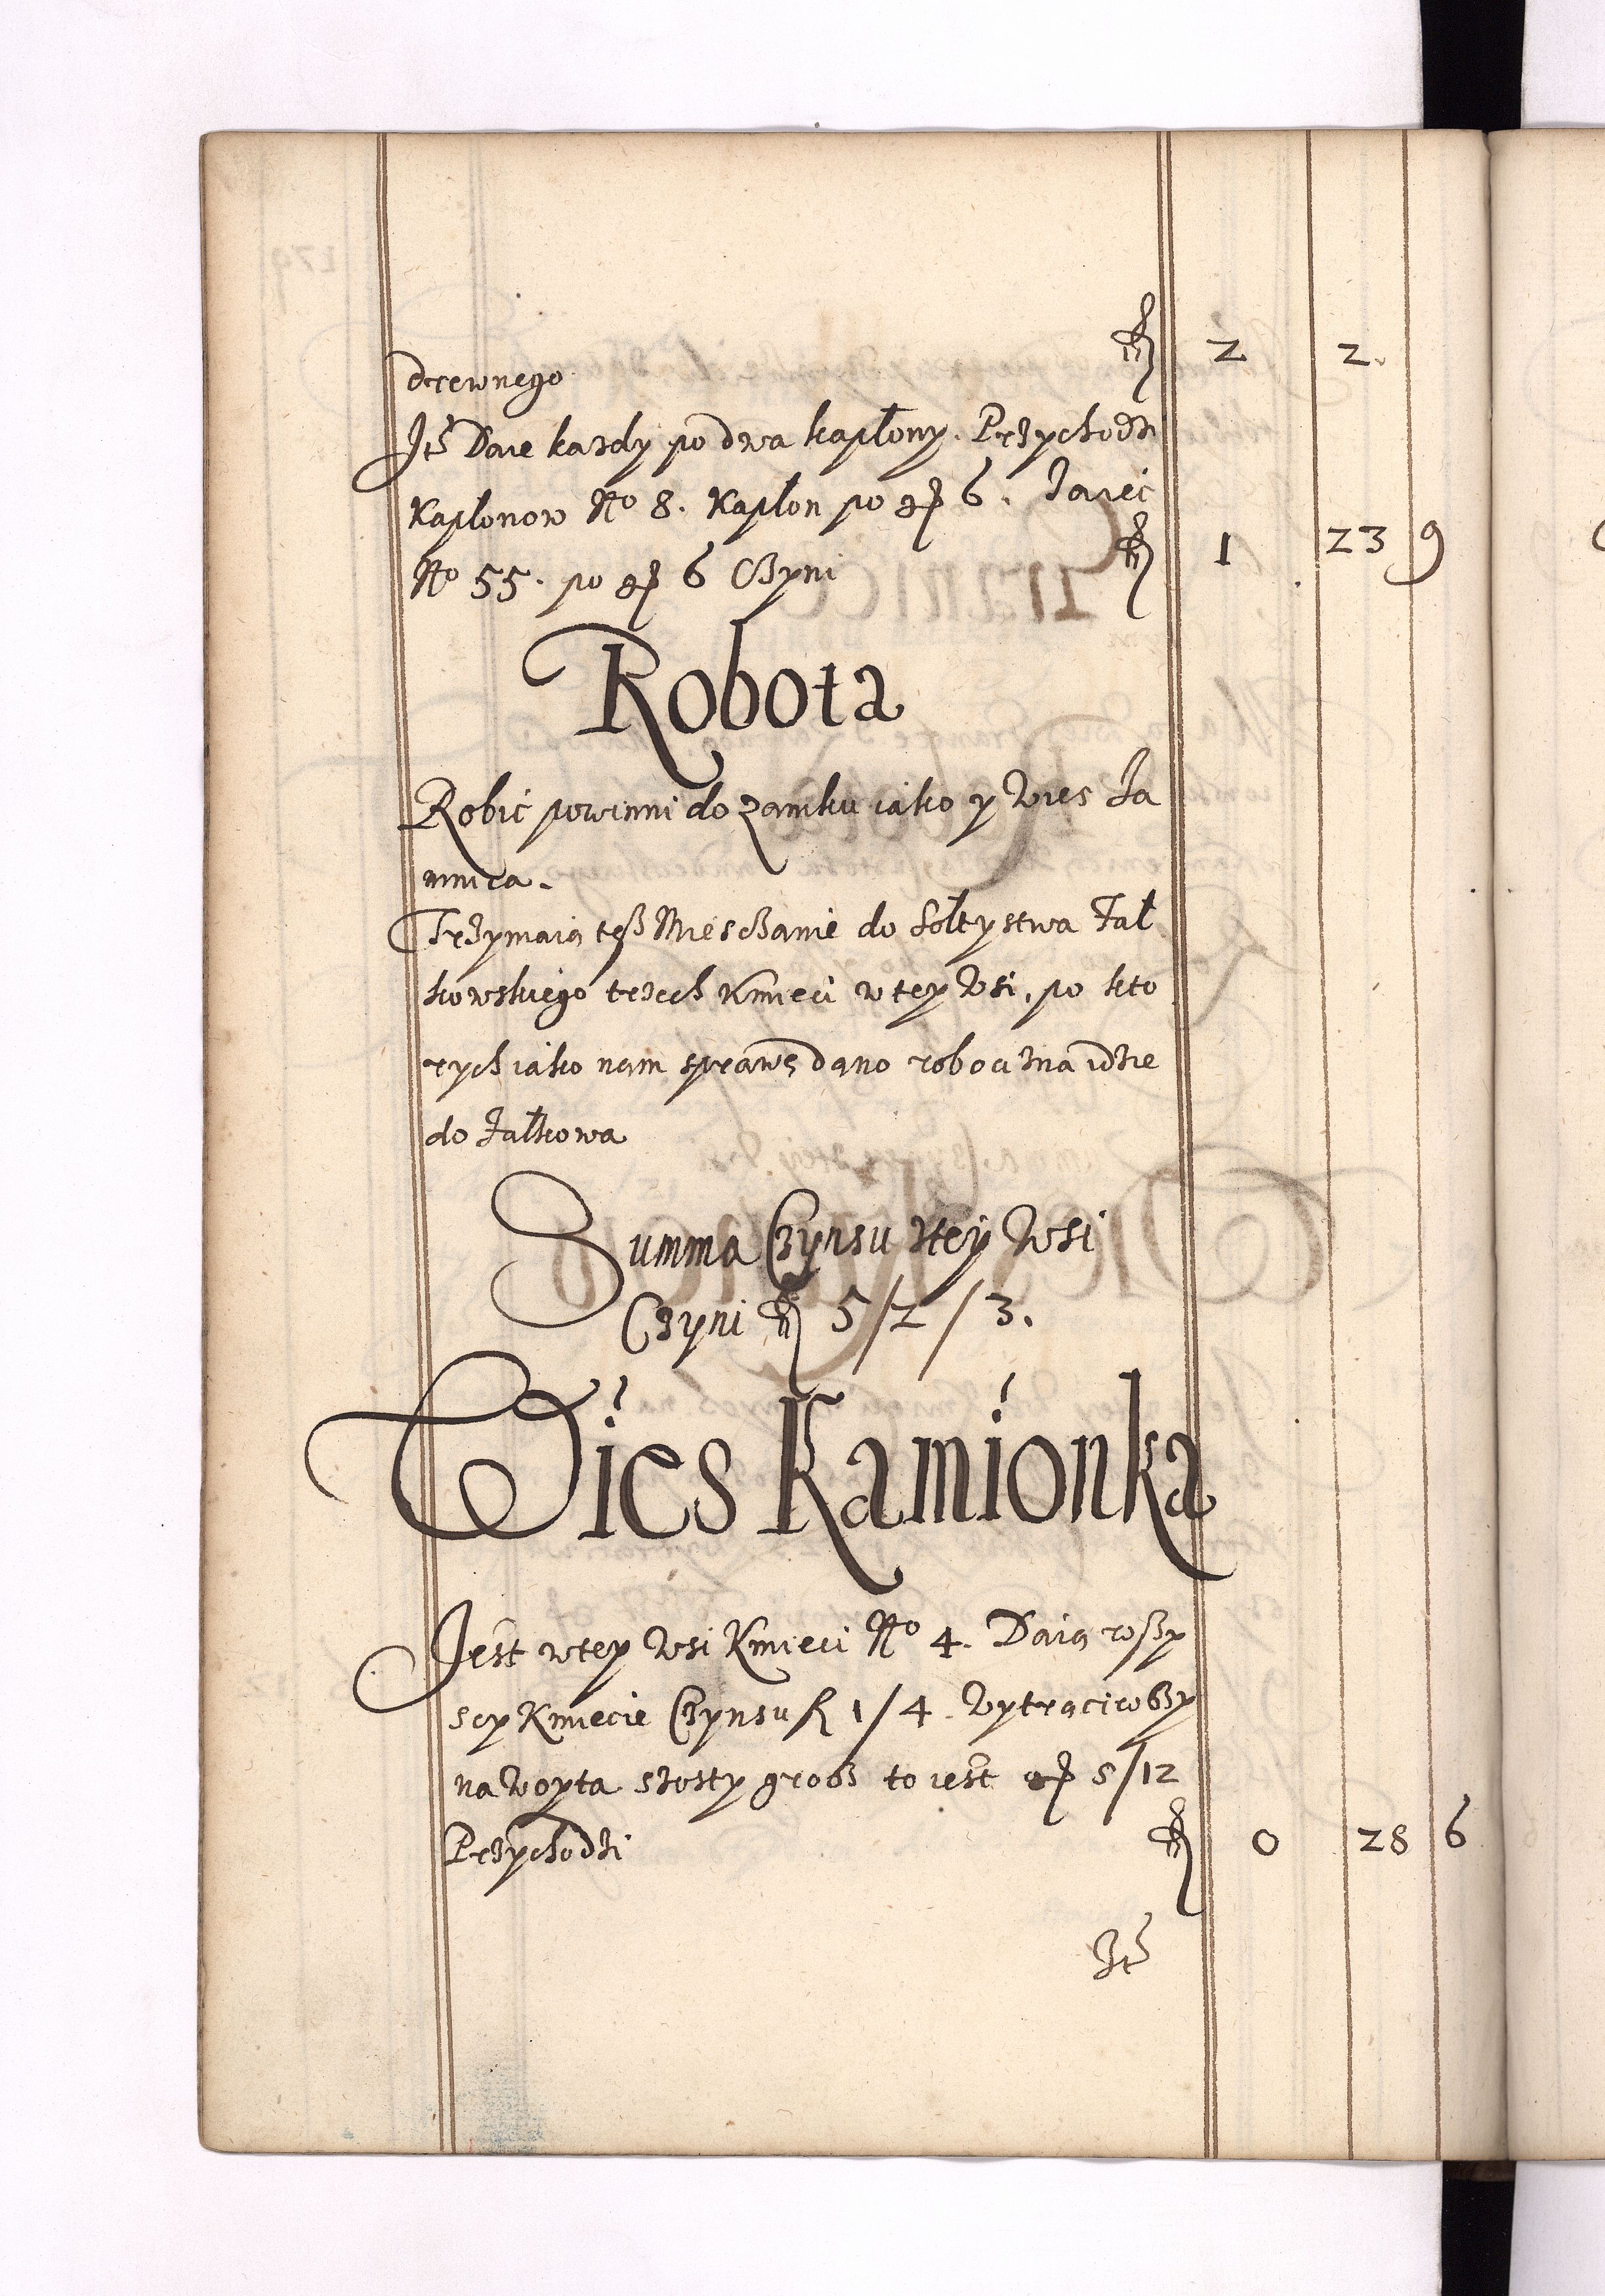 drewnego f 2 2.
Itẽ Daie kazdy po dwa kapłony. Przychodzi
Kapłonow No 8. Kapłon po gr 6. Iaiec
No 55. po gr 6 Czyni f 1 23 9
Robota
Robic powinni do zamku iako y Wies Ja
mnica.
Trzymaią tesz Miesczanie do sołtystwa Fał
kowskiego trzech Kmieci w tey Wsi, po kto
rych iako nam sprawę dano robocizna idzie
do Fałkowa
Summa Czynsu ztey Wsi
Czyni f 5/2/3.
Wies Kamionka
Jest w tey Wsi Kmieci No 4. Daią wszy
scy Kmiecie Czynsu f 1/4. Wytraciwszy
na Woyta szosty grosz to iest gr 5/12
Przychodzi f 0 28 6
Itẽ